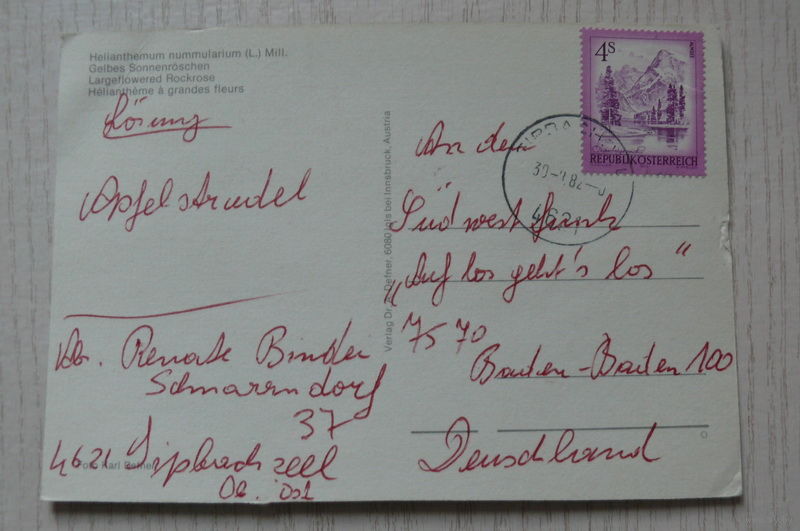 Helianthemum nummularium (L.) Mill.
Gelbes Sonnenröschen
Largeflowered Rockrose
Hélianthème à grandes fleurs
Lösung
Apfelstrudel
Abs. Renate Binder
Schnarrndorf
37
4621 Sipbachzell
Oö. Öst
Foto Karl
Verlag Dr. Defner, 6080 Igls bei Innsbruck, Austria
4S
ALMSEE
REPUBLIK ÖSTERREICH
4621
An den
Südwestfunk
„Auf los geht's los“
7570
Baden-Baden 100
Deutschland